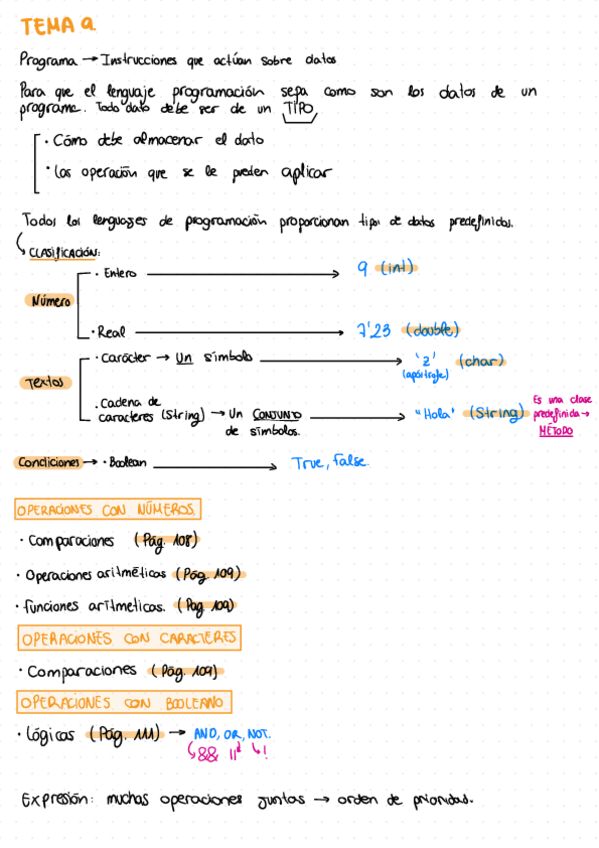 TEMA 9
Programa → Instrucciones que actúan sobre datos
Para que el lenguaje programación sepa como son los datos de un
programa. Todo dato debe ser de un TIPO
· Cómo debe almacenar el dato
· Las operación que se le pueden aplicar
Todos los lenguajes de programación proporcionan tipos de datos predefinidos.
CLASIFICACIÓN:
· Entero → 9 (int)
Número
· Real → 7'23 (double)
· Carácter → Un símbolo → 'z' (char)
(apóstrofe)
Textos
· Cadena de
caracteres (String) → Un CONJUNTO → "Hola" (String)
de símbolos.
Es una clase
predefinida →
MÉTODO
Condiciones → · Boolean → True, False.
OPERACIONES CON NÚMEROS
· Comparaciones (Pág. 108)
· Operaciones aritméticas (Pág. 109)
· Funciones aritmeticas. (Pag 109)
OPERACIONES CON CARACTERES
· Comparaciones (Pág. 109)
OPERACIONES CON BOOLEANO
· Lógicas (Pág. 111) → AND, OR, NOT.
&& || !
Expresión: muchas operaciones juntas → orden de prioridas.